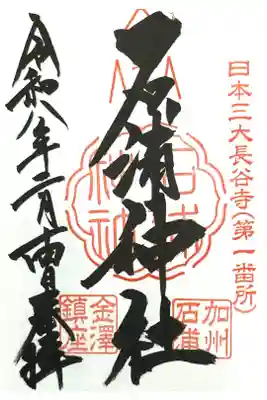 日本三大長谷寺(第一番所)
加州
石浦
石浦神社
石浦
神社
金澤
鎮座
令和八年二月 日奉拝